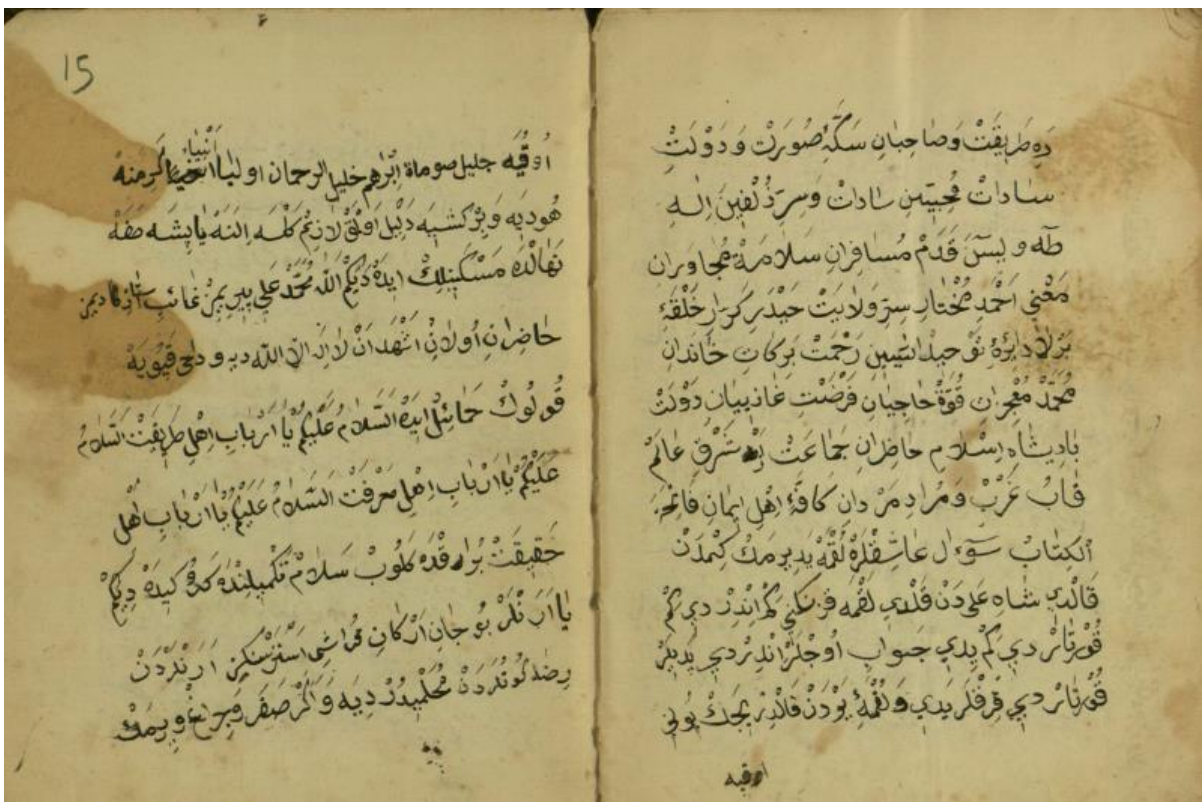 ده طريقت و صاحبان سكّۀ صورت و دولت
سادات محبّين سادات و سرّ ذلفين اله
طه و يسن قدم مسافران سلامة مجاوران
معني احمد مختار سرّ ولايت حيدر كرّار خلقۀ
دايرۀ توحيد رحمت بركات خاندان
محمّد قوّة حاجيان فرصت غازييان دولت
بادشاه اسلام حاضران جماعت شرق عالم
قاب عرب و مراد مردان كافۀ اهل ايمان فاتحه
الكتاب سوءال عاشقلره لقمه يديرمك كمدن
قالدي شاه علي دن قلدي لقمه كم اندر دي كم
قورتاتر دي كم يدي جواب اوجلر اندردي يديلر
قورتاتر دي قرقلر يدي و لقمۀ بودن قالدر بجك بولي
اوقيه
15
اوقيه جليل صوماة ابراهم خليل الرحمان اوليا انبياء كرمنه
هو ديه و بر كشيه دليل اولق لازم كلسه النه يابشه صفه
نهالنده مسكينلك ايده ديكم الله محمّد علي بيريمز غائب
حاضران اولان اشهد ان لا اله الا الله ديه و دخى قيويه
قولوك حمائل ايده السّلام عليكم يا ارباب اهل طريقت السّلام
عليكم يا ارباب اهل معرفت السّلام عليكم يا ارباب اهل
حقيقت برارقده كلوب سلام تكميلنده كدو كيده ديكم
يا ارنلر بو جان اركان استر سنكز ارنلردن
رضا كوندردن ديه و اكر صفر و چراغ ويرمك